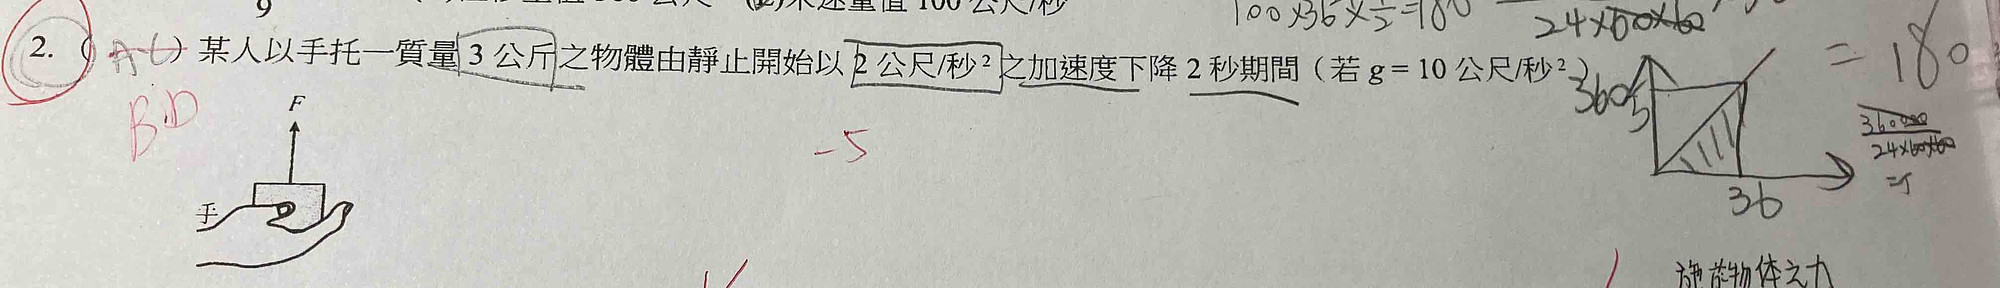 9
100公尺/秒
100×36×½=180
24×60×60
= 180
2. (AC) 某人以手托一質量 3 公斤之物體由靜止開始以 2 公尺/秒² 之加速度下降 2 秒期間（若 g = 10 公尺/秒²）
BD
F
手
-5
360
5
36
360000
24×60×60
施於物体之力